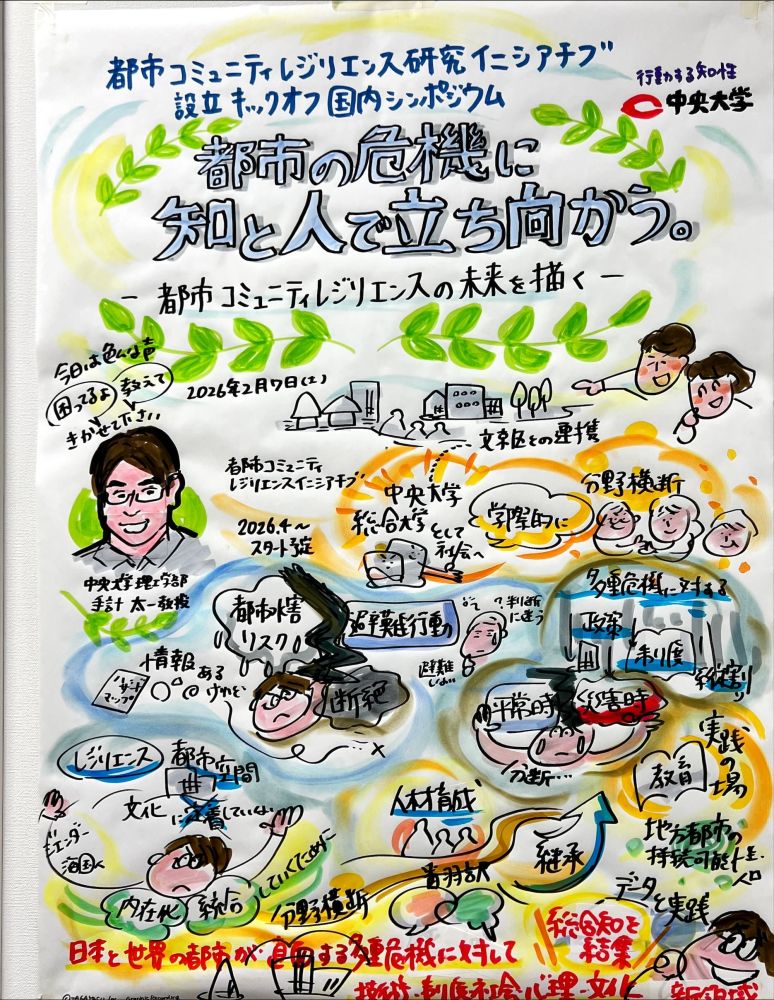 都市コミュニティレジリエンス研究イニシアチブ
設立キックオフ国内シンポジウム
行動する知性
中央大学
都市の危機に
知と人で立ち向かう。
－都市コミュニティレジリエンスの未来を描く－
今日は色んな声
困ってるよ
教えて
きかせて下さい
2026年2月7日(土)
文京区との連携
都市コミュニティ
レジリエンスイニシアチブ
2026.4～
スタート予定
中央大学
総合大学として
社会へ
学際的に
分野横断
中央大学理工学部
手計 太一教授
都市水害
リスク
避難行動
?判断
に迷う
避難
多重危機に対する
政策
制度
縦割り
情報
ある
けれど
ハザード
マップ
断絶
平常時
災害時
分断…
実践
の場
教育
レジリエンス
都市空間
文化に定着していない
人材育成
継承
地方都市の
持続可能性
人口
ジェンダー
外国人
内在化
統合
していくために
分野横断
翻訳
データと実践
総合知を
結集
日本と世界の都市が直面する多重危機に対して
技術・制度社会・心理・文化